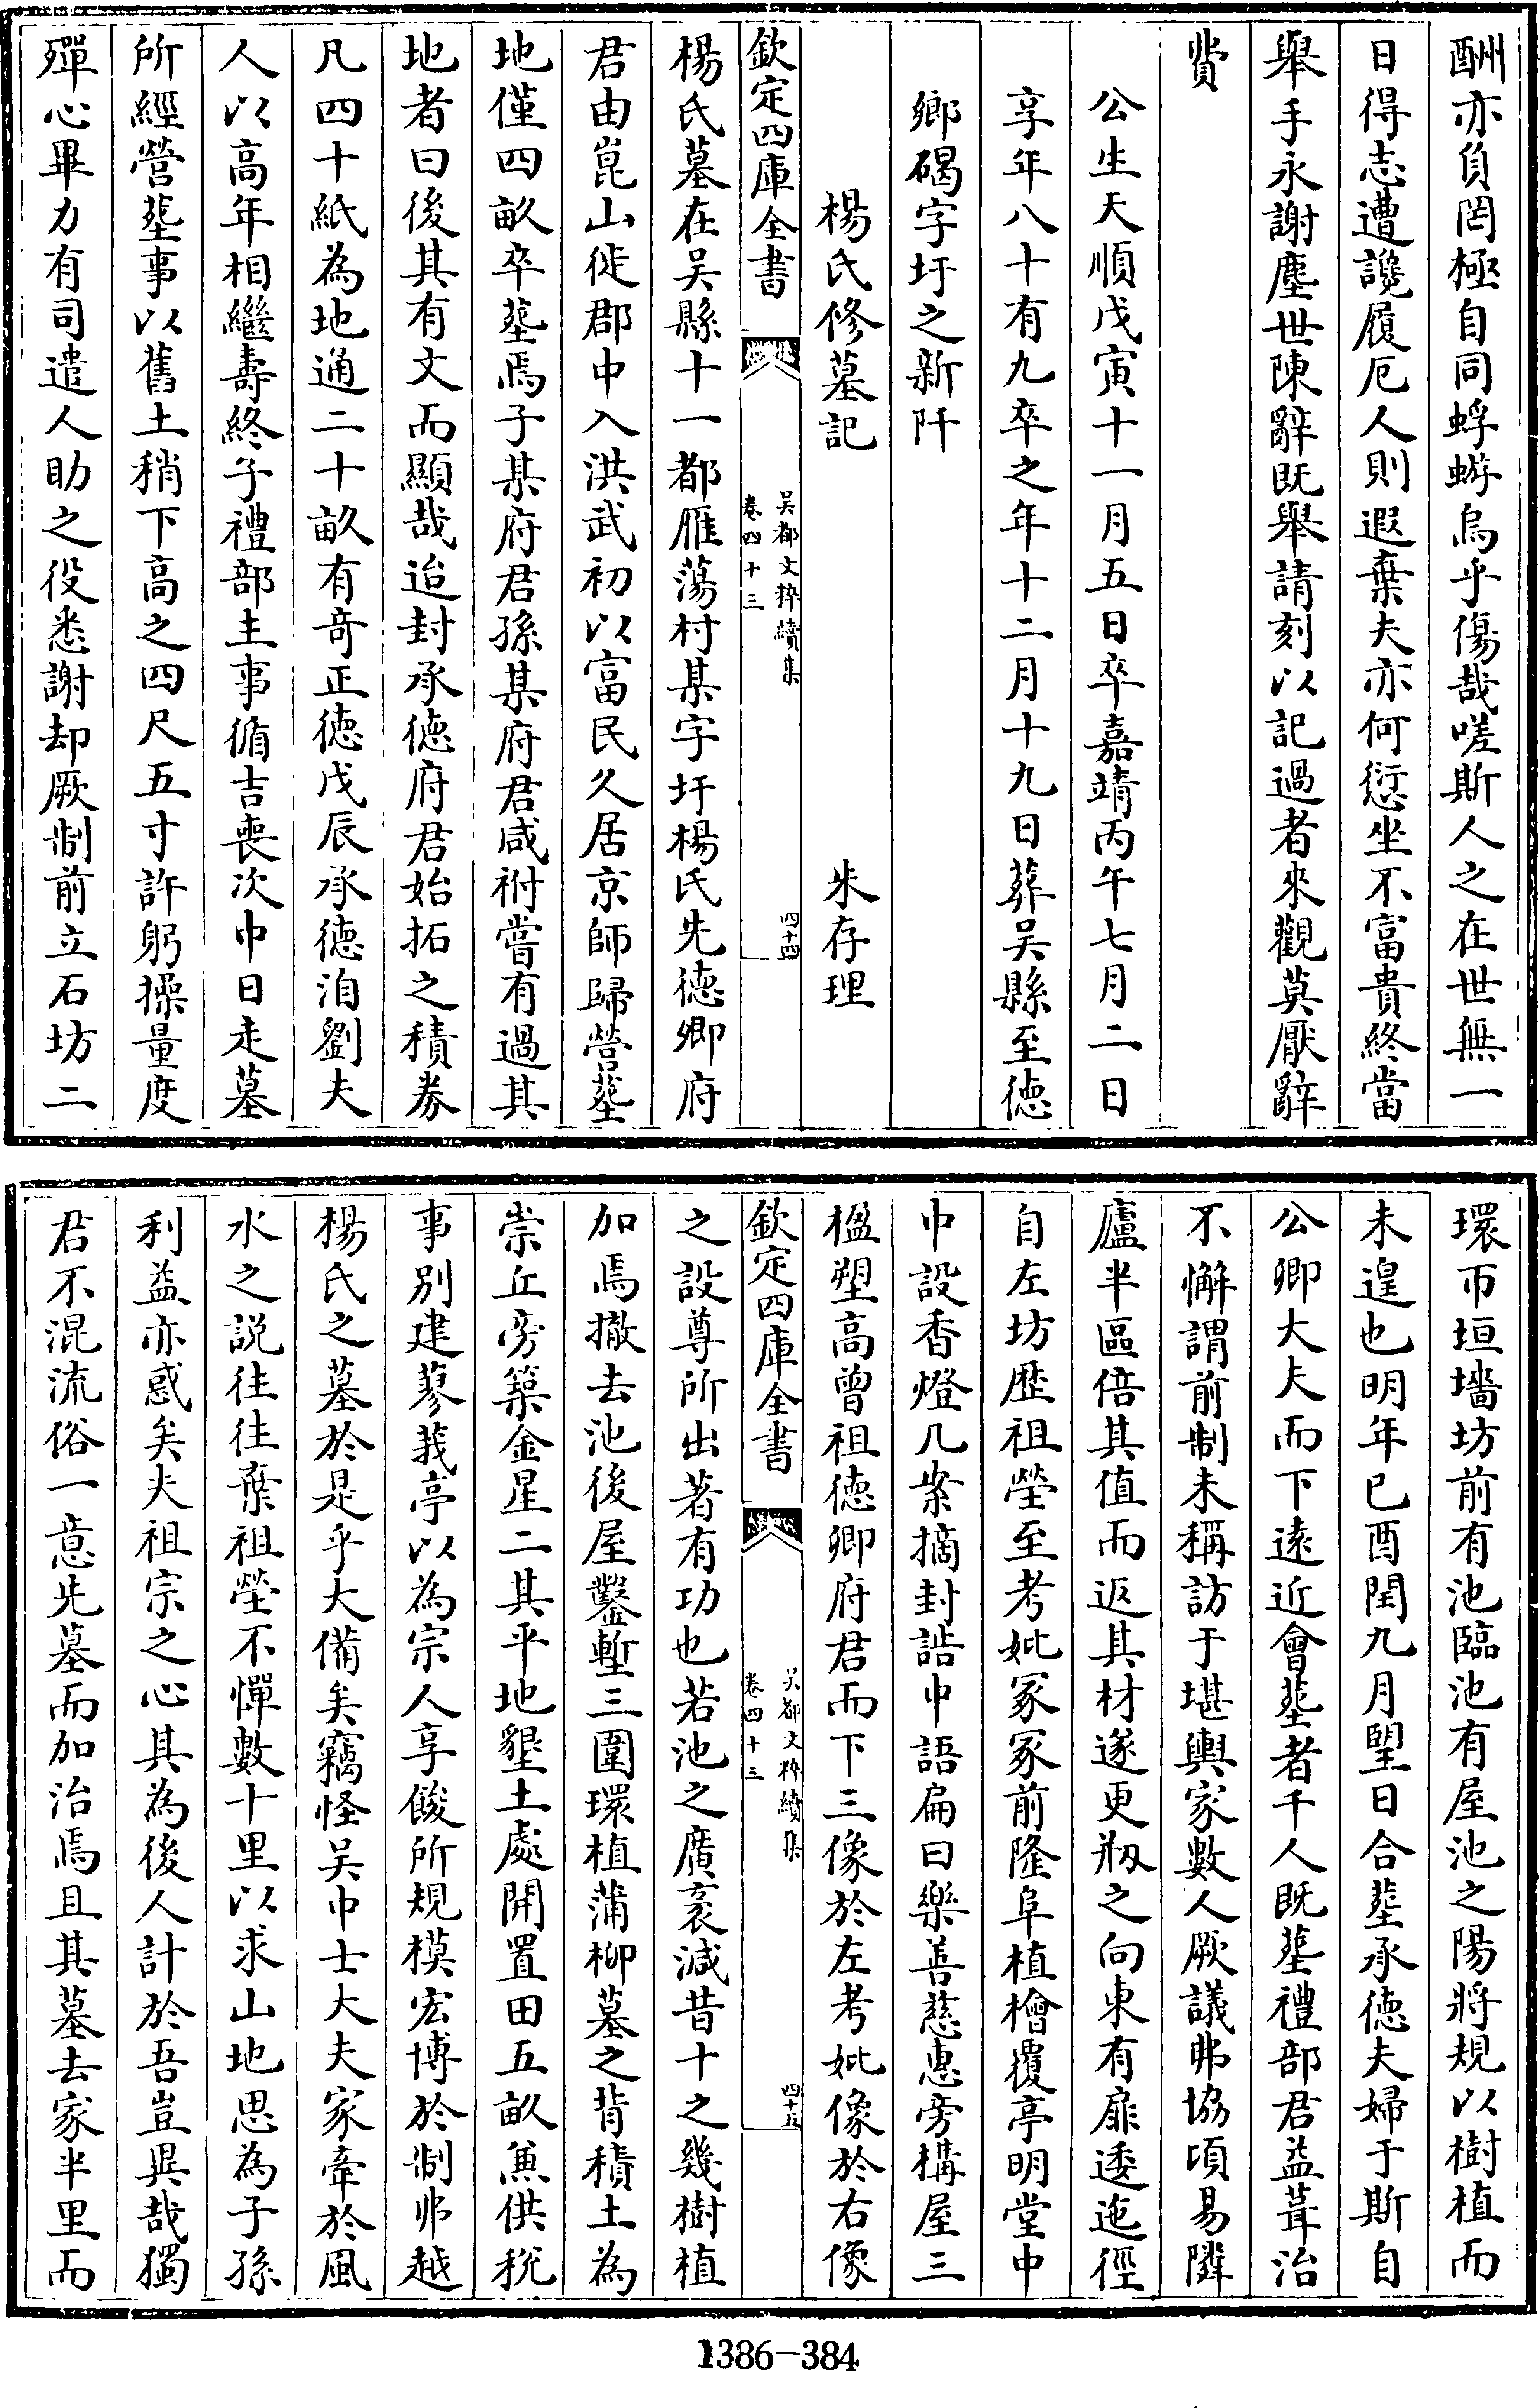 酬亦負罔極自同蜉蝣烏乎傷哉嗟斯人之在世無一
日得志遭讒履厄人則遐棄夫亦何愆坐不富貴終當
舉手永謝塵世陳辭既舉請刻以記過者來觀莫厭辭
費
公生天順戊寅十一月五日卒嘉靖丙午七月二日
享年八十有九卒之年十二月十九日葬吳縣至徳
鄉碣字圩之新阡
楊氏修墓記 朱存理
欽定四庫全書
吳都文粹續集
卷四十三
四十四
楊氏墓在吳縣十一都雁蕩村某字圩楊氏先徳卿府
君由崑山徙郡中入洪武初以富民久居京師歸營塟
地僅四畝卒塟焉子某府君孫某府君咸祔嘗有過其
地者曰後其有文而顯哉迨封承徳府君始拓之積劵
凡四十紙為地通二十畝有竒正徳戊辰承徳洎劉夫
人以高年相繼壽終子禮部主事循吉喪次中日走墓
所經營塟事以舊土稍下高之四尺五寸許躬操量度
殫心畢力有司遣人助之役悉謝却厥制前立石坊二
環帀垣墻坊前有池臨池有屋池之陽將規以樹植而
未遑也明年已酉閏九月朢日合塟承徳夫婦于斯自
公卿大夫而下逺近會塟者千人既塟禮部君益葺治
不懈謂前制未稱訪于堪輿家數人厥議弗協頃易隣
廬半區倍其值而返其材遂更剏之向東有扉逶迤徑
自左坊歴祖塋至考妣冢冢前隆阜植檜覆亭明堂中
中設香燈几案摘封誥中語扁曰樂善慈惠旁構屋三
楹塑高曾祖徳卿府君而下三像於左考妣像於右像
欽定四庫全書
吳都文粹續集
卷四十三
四十五
之設尊所出著有功也若池之廣袤減昔十之幾樹植
加焉撤去池後屋鑿塹三圍環植蒲柳墓之背積土為
崇丘旁築金星二其平地墾土處開置田五畝兼供稅
事别建蓼莪亭以為宗人享餕所規模宏博於制弗越
楊氏之墓於是乎大備矣竊怪吳中士大夫家牽於風
水之説往往棄祖塋不憚數十里以求山地思為子孫
利益亦惑矣夫祖宗之心其為後人計於吾豈異哉獨
君不混流俗一意先墓而加治焉且其墓去家半里而
1386-384